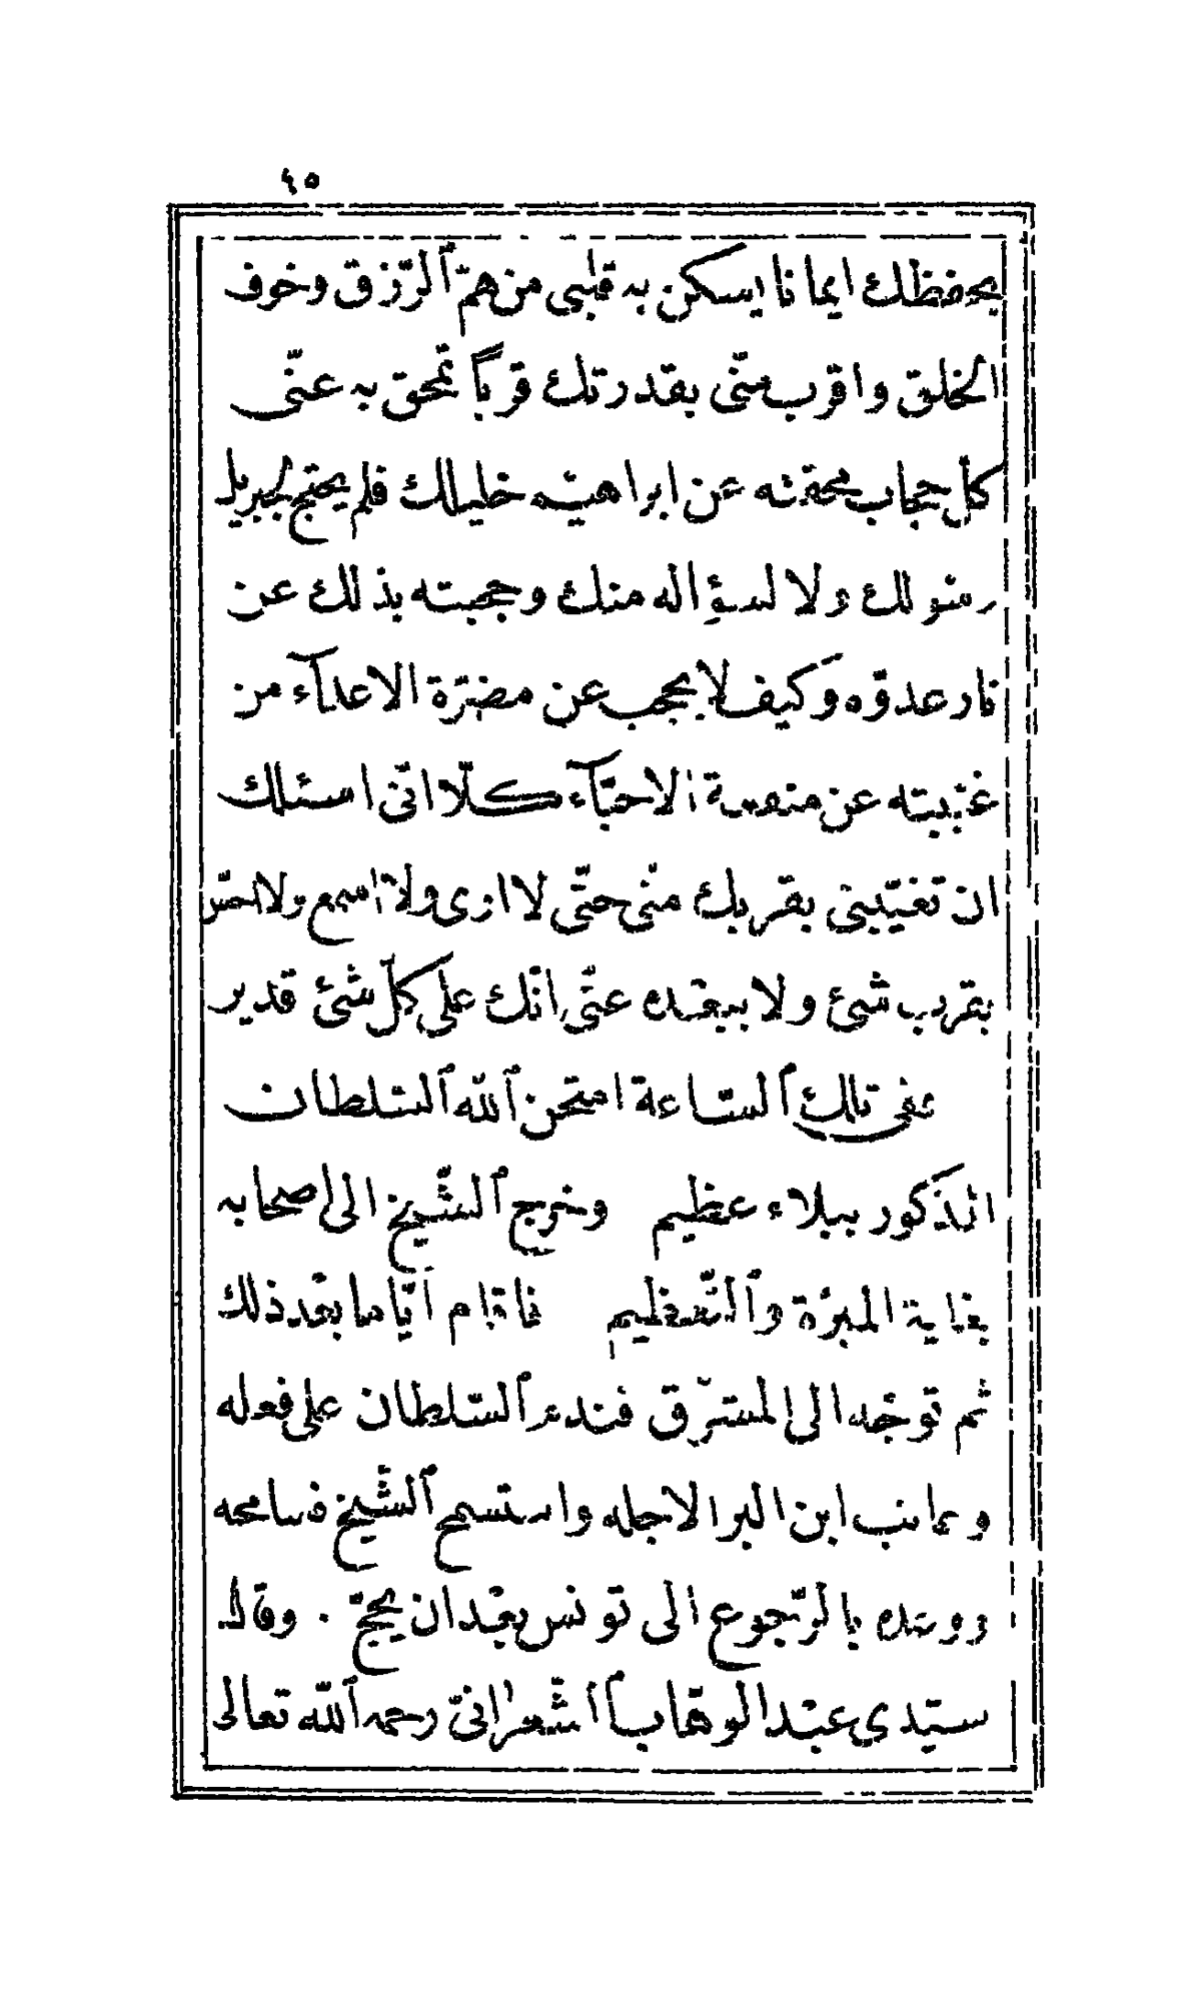 ٤٥
بحفظك ايمانا يسكن به قلبى من همّ الرّزق وخوف
الخلق واقرب منّى بقدرتك قربًا تمحق به عنّى
كلّ حجاب محقته عن ابراهيم خليلك فلم يحتج لجبريل
رسولك ولا لسؤاله منك وحجبته بذلك عن
نار عدوّه وكيف لا يحجب عن مضرّة الاعدآء من
غيّبته عن منفعة الاحبّآء كلّا انّى اسئلك
ان تغيّبنى بقربك منّى حتّى لا ارى ولا اسمع ولا احسّ
بقرب شئ ولا ببعده عنّى انّك على كلّ شئ قدير
ففى تلك السّاعة امتحن الله السّلطان
المذكور ببلاء عظيم وخرج الشّيخ الى اصحابه
بغاية المبرّة والتّعظيم فاقام ايّاما بعد ذلك
ثم توجّه الى المشرق فندم السّلطان على فعله
وعاتب ابن البرا لاجله واستسمح الشّيخ فسامحه
ووعده بالرّجوع الى تونس بعد ان يحجّ . وقال
سيّدى عبد الوهّاب الشّعرانىّ رحمه الله تعالى